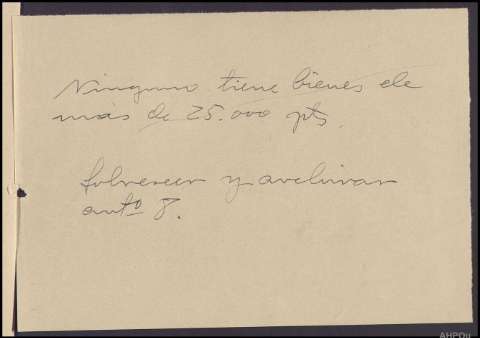 Ninguno tiene bienes de
más de 25.000 pts.
Sobreseer y archivar
artº 8.
AHPOu